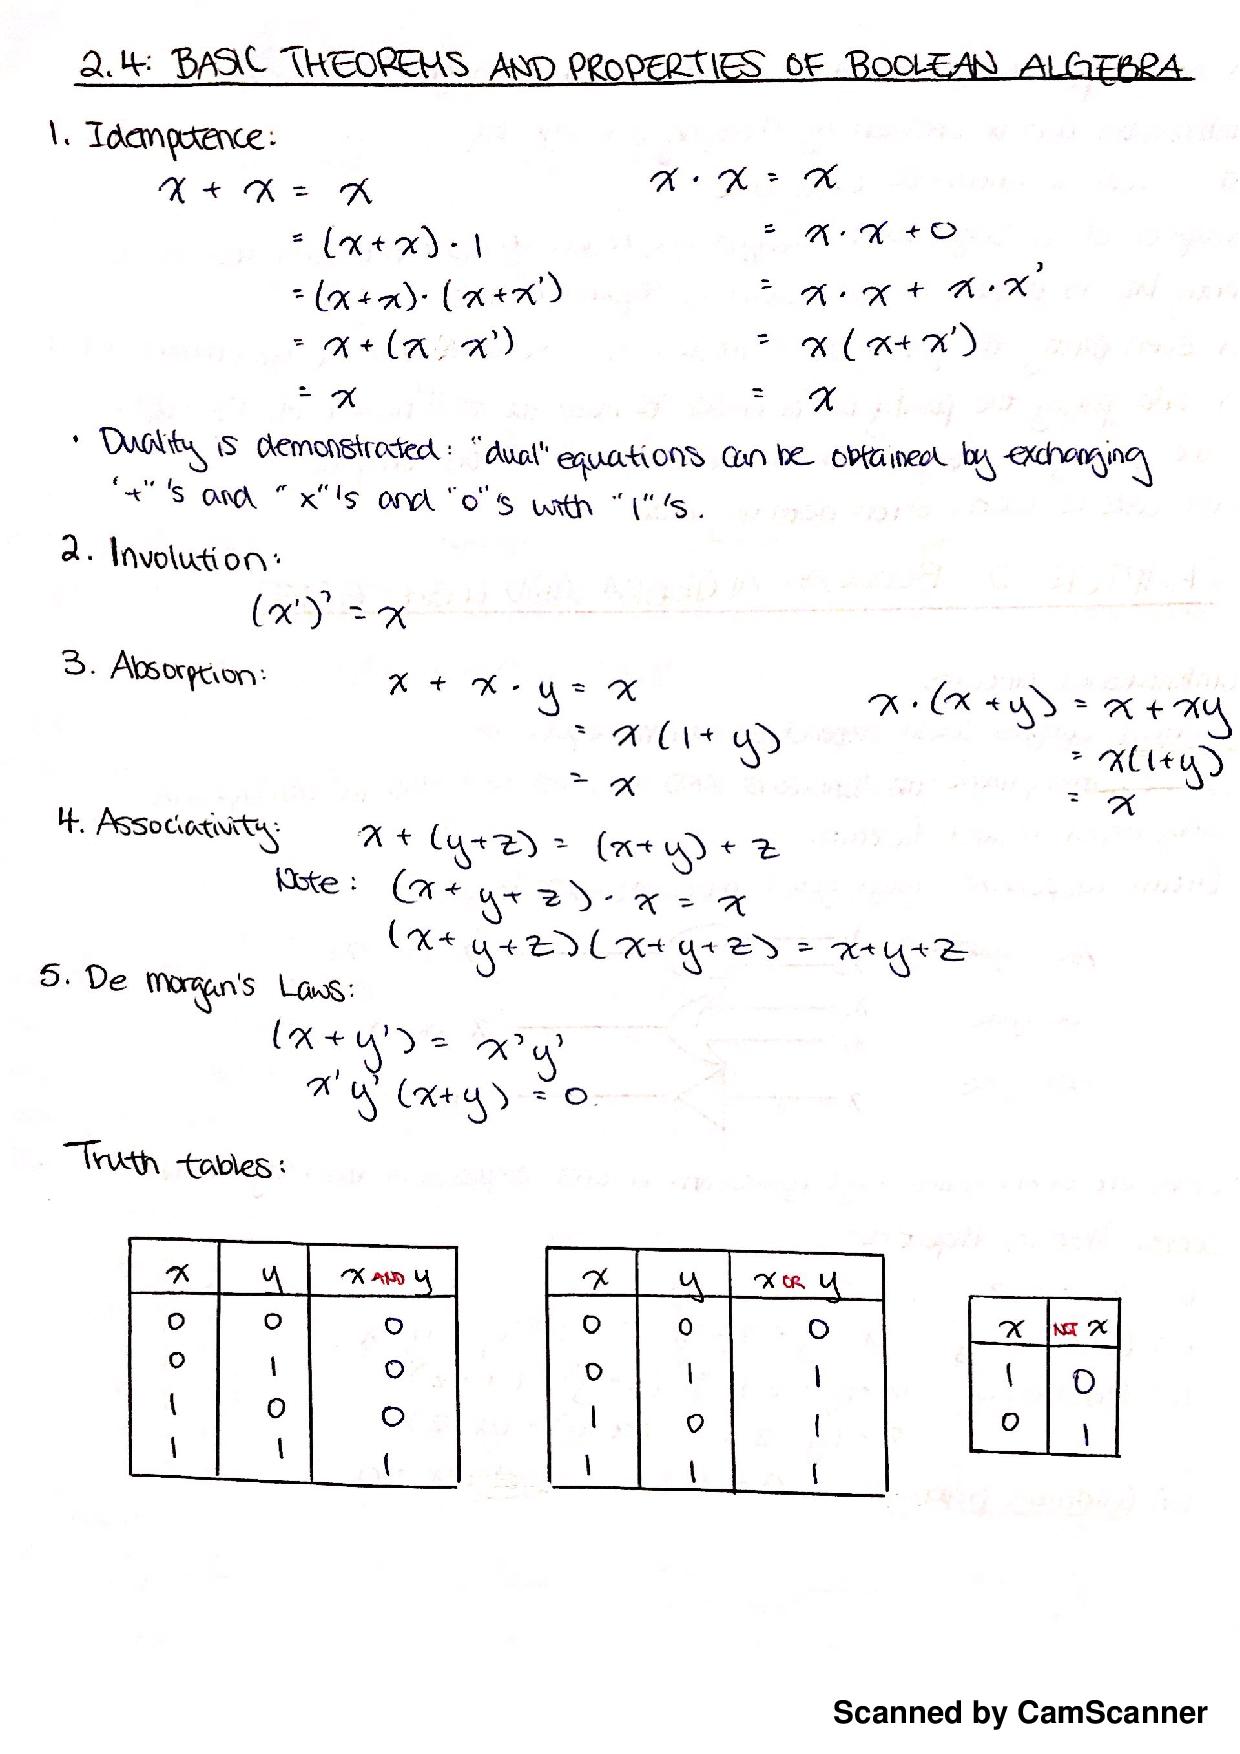 2.4: BASIC THEOREMS AND PROPERTIES OF BOOLEAN ALGEBRA
1. Idempotence:
x + x = x
= (x+x)·1
= (x+x)·(x+x')
= x+(x·x')
= x
x · x = x
= x·x+0
= x·x + x·x'
= x(x+x')
= x
· Duality is demonstrated: "dual" equations can be obtained by exchanging
"+"'s and "x"'s and "0"s with "1"'s.
2. Involution:
(x')' = x
3. Absorption:
x + x·y = x
= x(1+y)
= x
x·(x+y) = x+xy
= x(1+y)
= x
4. Associativity:
x+(y+z) = (x+y)+z
Note: (x+y+z)·x = x
(x+y+z)(x+y+z) = x+y+z
5. De morgan's Laws:
(x+y') = x'y'
x'y'(x+y) = 0.
Truth tables:
x y x AND y
0 0 0
0 1 0
1 0 0
1 1 1
x y x OR y
0 0 0
0 1 1
1 0 1
1 1 1
x NOT x
1 0
0 1
Scanned by CamScanner